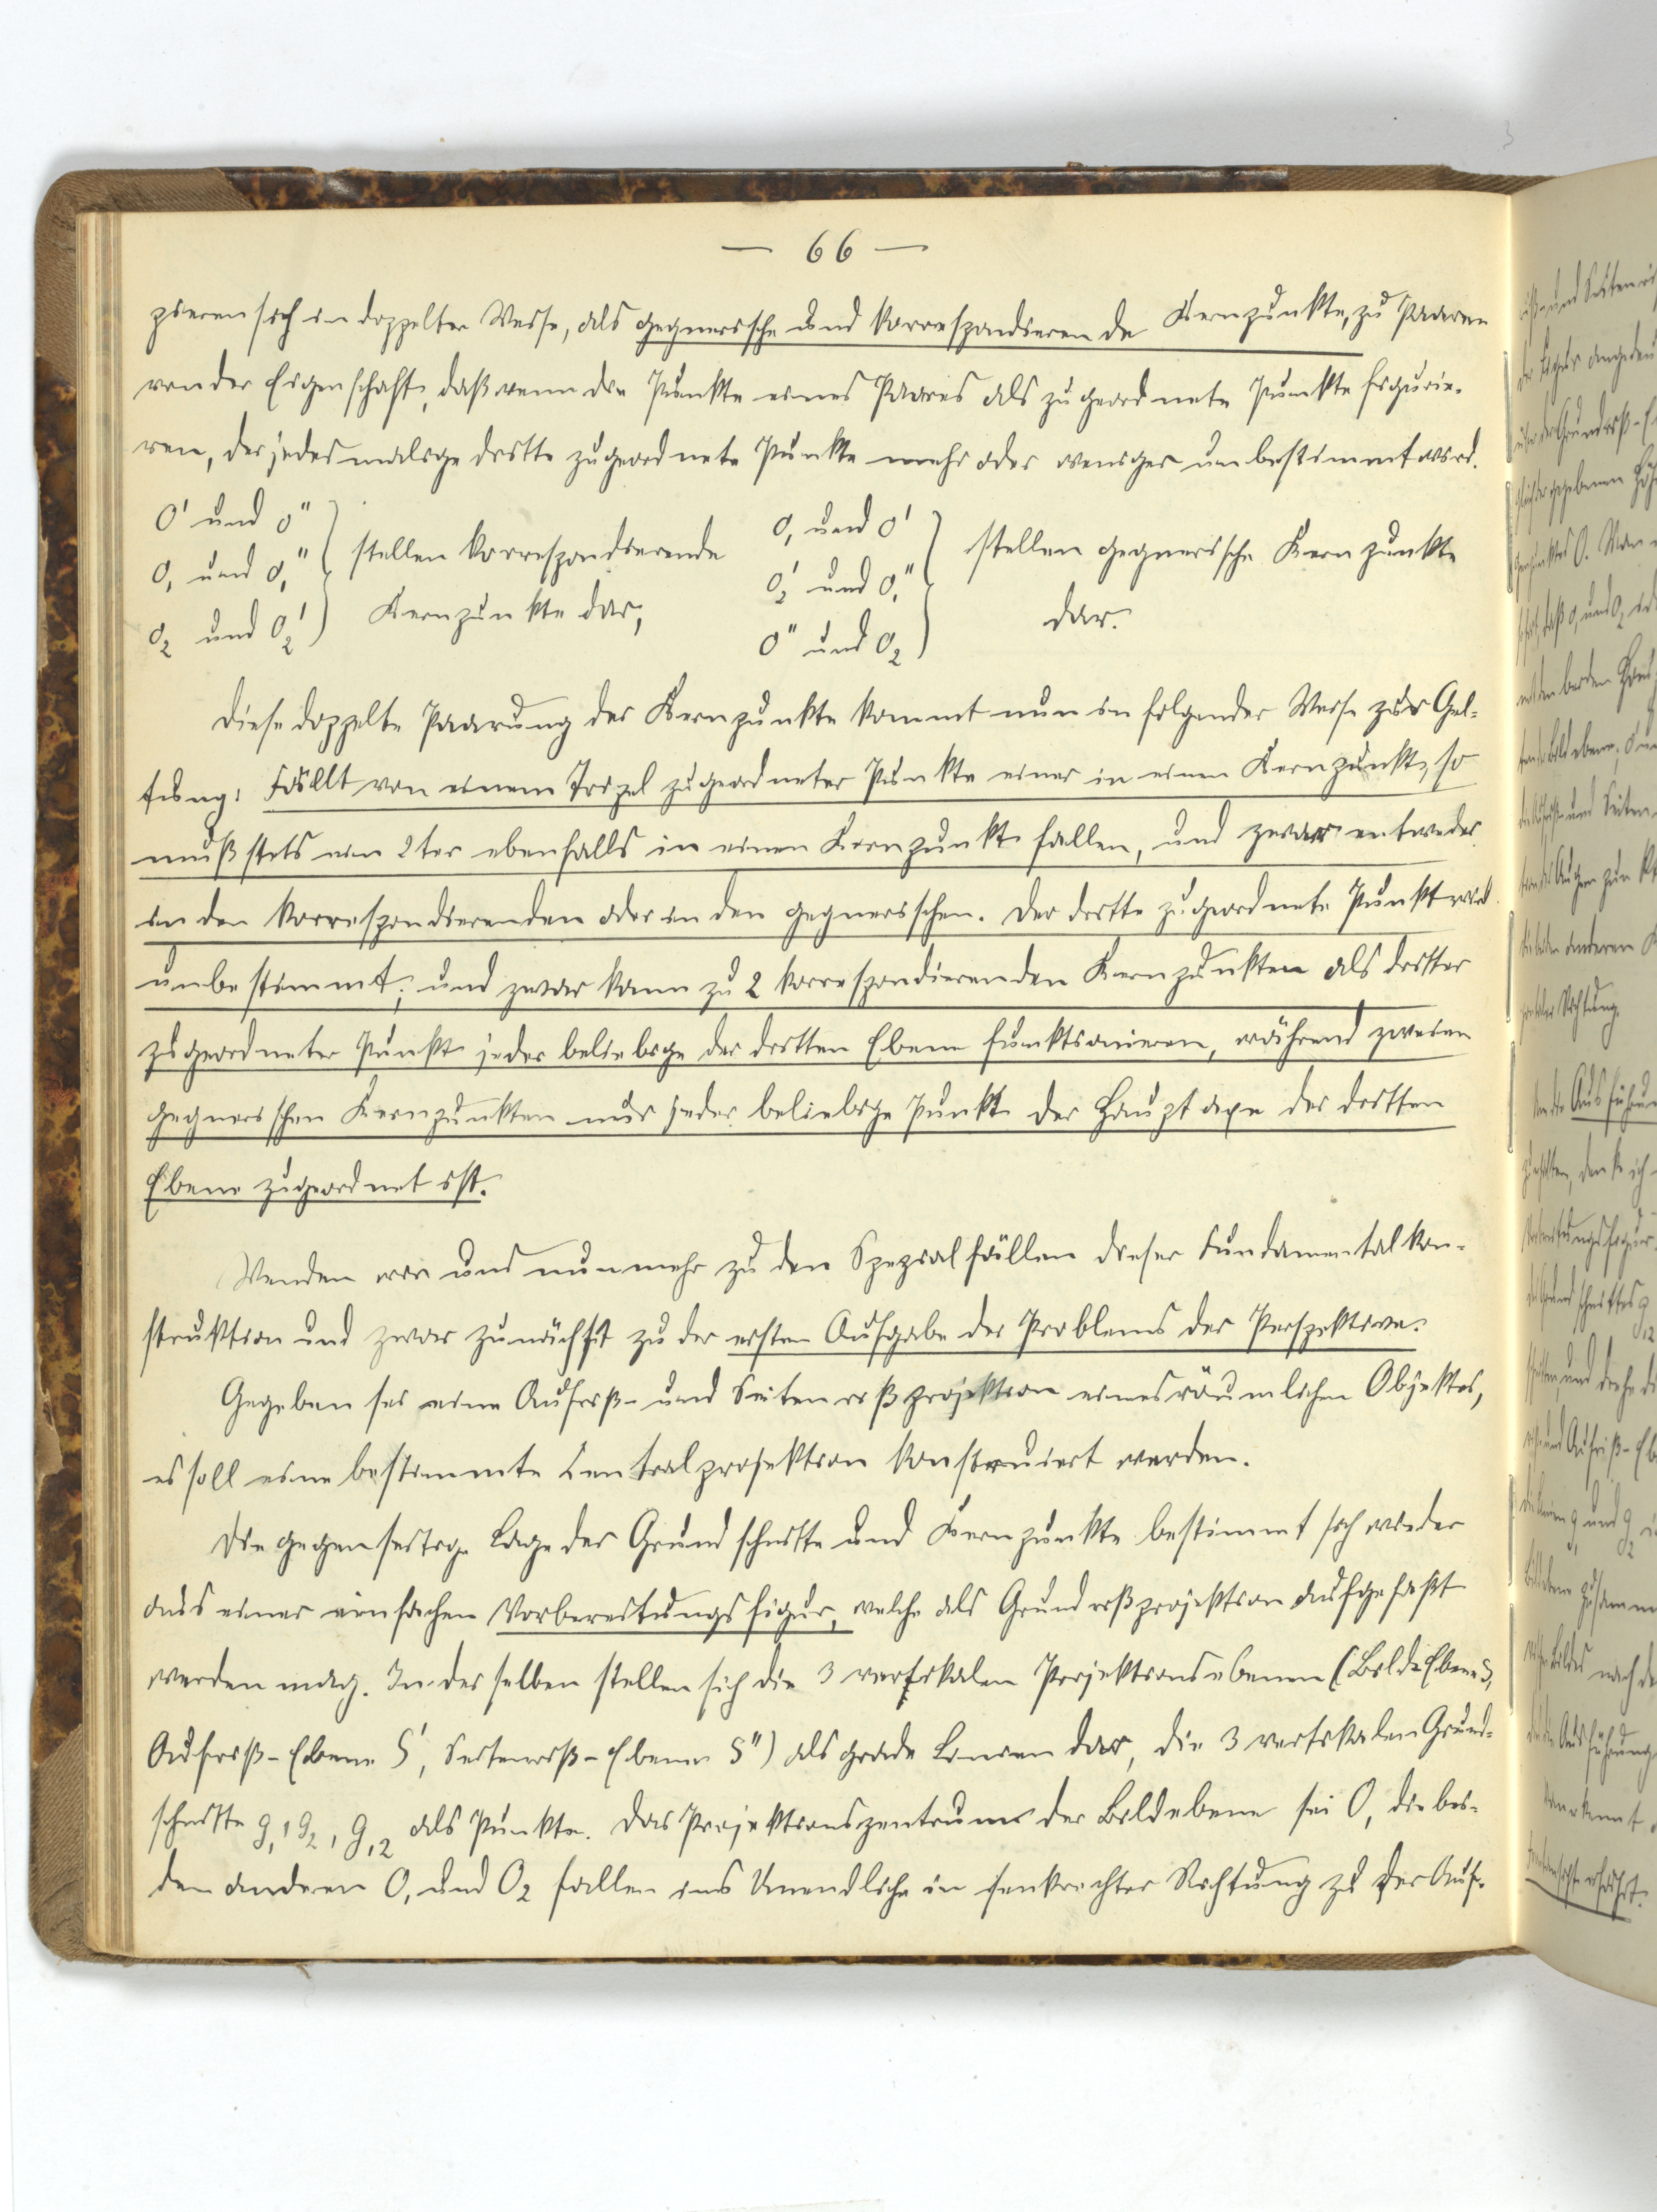 — 66 —
zieren sich in doppelter Weise, als gegnerische und korrespondierende Kernpunkte, zu Paaren
von der Eigenschaft, daß wenn die Punkte eines Paares als zugeordnete Punkte figurie-
ren, der jedesmalige dritte zugeordnete Punkt mehr oder weniger unbestimmt wird.
O' und O'' } stellen korrespondierende O₁ und O' } stellen gegnerische Kernpunkte
O₁ und O₁'' } Kernpunkte dar; O₂' und O₁'' } dar.
O₂ und O₂' } O'' und O₂ }
Diese doppelte Paarung der Kernpunkte kommt nun in folgender Weise zur Gel-
tung: Fällt von einem Tripel zugeordneter Punkte einer in einen Kernpunkt, so
muß stets ein 2ter ebenfalls in einen Kernpunkt fallen, und zwar entweder
in den korrespondierenden oder in den gegnerischen. Der dritte zugeordnete Punkt wird
unbestimmt; und zwar kann zu 2 korrespondierenden Kernpunkten als dritter
zugeordneter Punkt jeder beliebige der dritten Ebene funktionieren, während zweien
gegnerischen Kernpunkten nur jeder beliebige Punkt der Hauptaxe der dritten
Ebene zugeordnet ist.
Wenden wir uns nunmehr zu den Spezialfällen dieser Fundamentalkon-
struktion und zwar zunächst zu der ersten Aufgabe des Problems der Perspektive.
Gegeben sei eine Aufriß- und Seitenrißprojektion eines räumlichen Objektes,
es soll eine bestimmte Centralprojektion konstruiert werden.
Die gegenseitige Lage der Grundschnitte und Kernpunkte bestimmt sich wieder
aus einer einfachen Vorbereitungsfigur, welche als Grundrißprojektion aufgefaßt
werden mag. In derselben stellen sich die 3 vertikalen Projektionsebenen (Bild-Ebene S,
Aufriß-Ebene S', Seitenriß-Ebene S'') als grade Linien dar, die 3 vertikalen Grund-
schnitte g₁, g₂, g₁₂ als Punkte. Das Projektionszentrum der Bildebene sei O, die bei-
den anderen O₁ und O₂ fallen ins Unendliche in senkrechter Richtung zu der Auf-